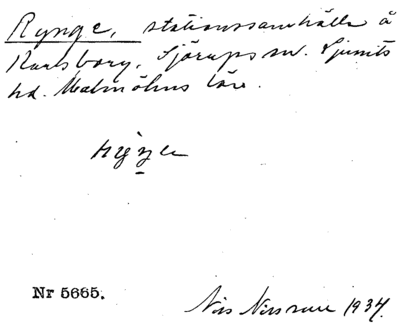 Rynge, stationssamhälle å
Karlsborg, Sjörups sn. Ljunits
hd. Malmöhus län.
Nr 5665.
Nils Nilsson 1937.